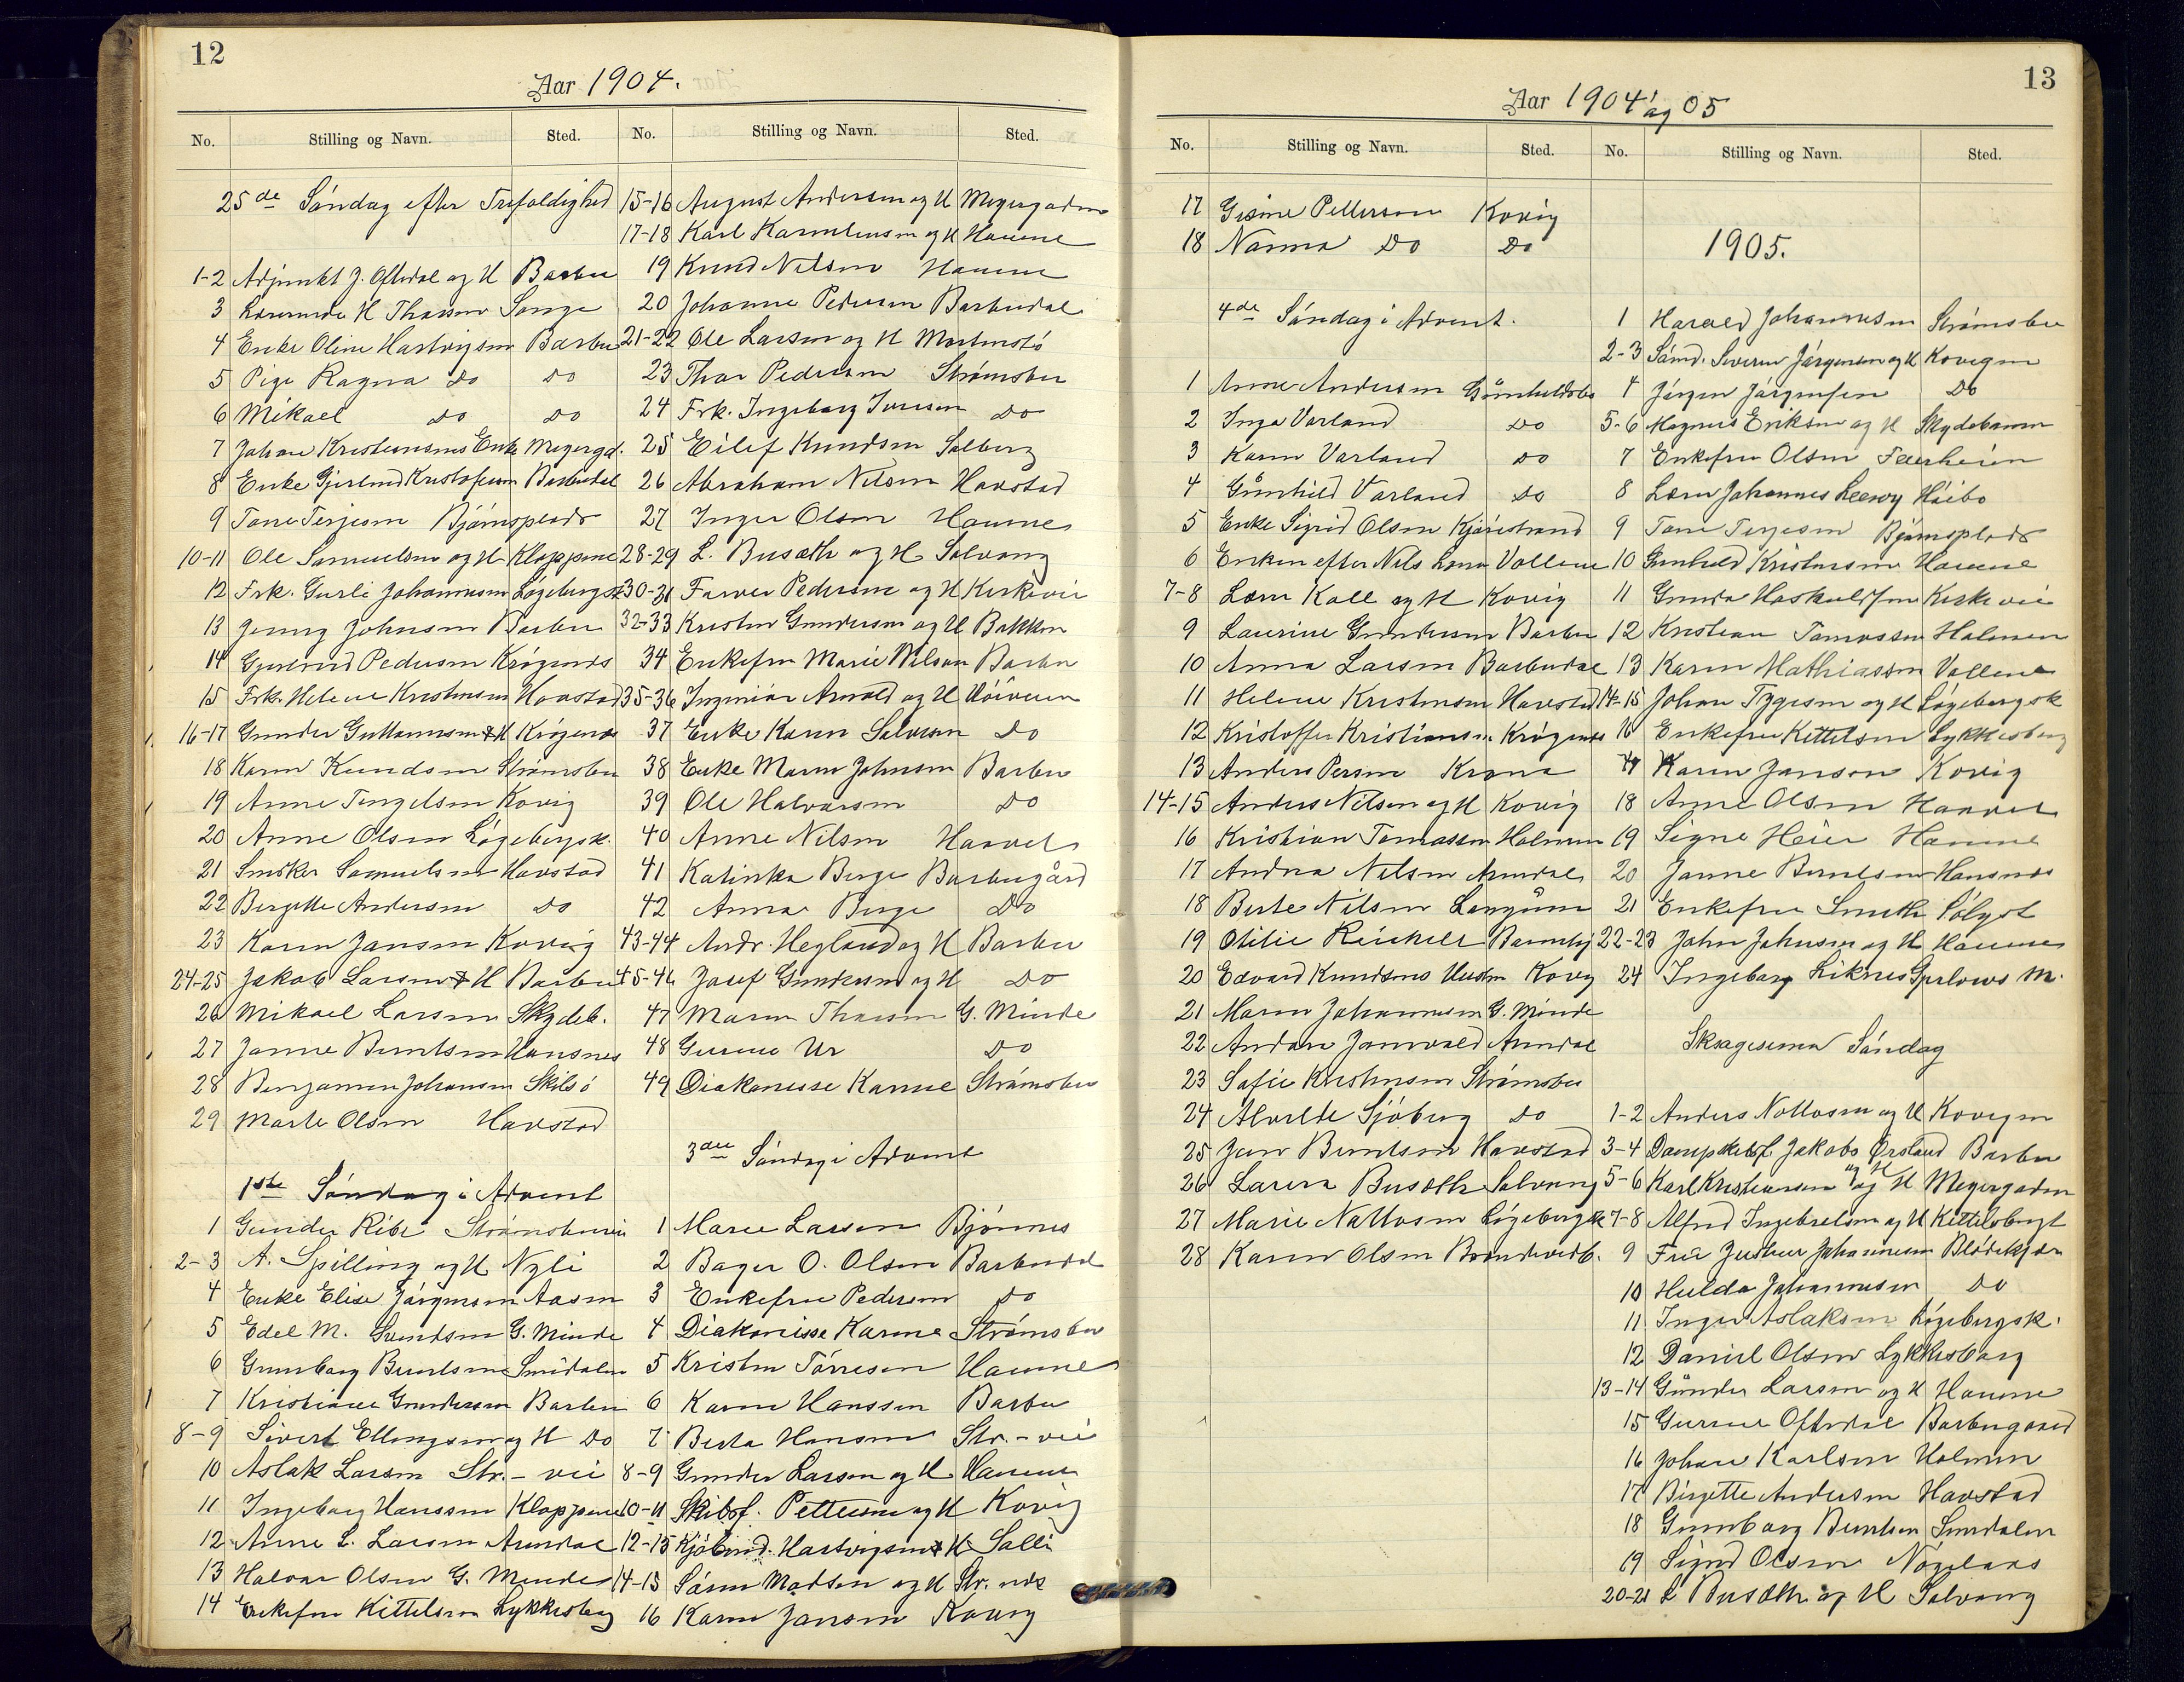 12
Aar 1904.
No. Stilling og Navn. Sted. No. Stilling og Navn. Sted.
25de Søndag efter Trefoldighed
1-2 Adjunkt J. Oftedal og H Barbu
3 H Thorsen Songe
4 Enke Oline Hartvigsen Barbu
5 Pige Ragna Do Do
6 Mikael Do Do
7 Johan Kristiansens Enke Meyergd.
8 Enke Gjerlend Kristofersen Barbudal
9 Tone Terjesen Bjørnsplads
10-11 Ole Samuelsen og H Kloppene
12 Frk. Gurli Johannesen Løgebergsk
13 Jenny Johnsen Barbu
14 Pedersen Krøgenes
15 Frk. Helene Kristensen Havstad
16-17 Gunder Guttormsen & H Krøgenes
18 Karen Knudsen Strømsbu
19 Anne Tengelsen Kovig
20 Anne Olsen Løgebergsk.
21 Snedker Samuelsen Havstad
22 Bergitte Andersen Do
23 Karen Jansen Kovig
24-25 Jakob Larsen & H Barbu
26 Mikael Larsen Skydeb.
27 Janne Berntsen Hansnes
28 Benjamin Johansen Skilsø
29 Marte Olsen Havstad
1ste Søndag i Advent
1 Gunder Ribe Strømsbuvei
2-3 A. Spilling og H Nyli
4 Enke Elise Jørgensen Aasen
5 Edel M. Svendsen G. Minde
6 Gunborg Berntsen Smidalen
7 Kristiane Gundersen Barbu
8-9 Sivert Ellingsen og H Do
10 Aslak Larsen Str.-vei
11 Ingeborg Hanssen Kloppene
12 Anne L. Larsen Arendal
13 Halvor Olsen G. Minde
14 Enkefru Kittelsen Lykkesborg
15-16 August Andersen og H Meyergaden
17-18 Karl Karmeliussen og H Havne
19 Knud Nilsen Havne
20 Johanne Pedersen Barbudal
21-22 Ole Larsen og H Mortensbø
23 Thor Pedersen Strømsbu
24 Frk. Ingeborg Iversen Do
25 Eilef Knudsen Solberg
26 Abraham Nilsen Havstad
27 Inger Olsen Havnes
28-29 L. Busæth og H Solvang
30-31 Farver Pedersen og H Kirkevei
32-33 Kristen Gundersen og H Bakken
34 Enkefru Marie Nilsen Barbu
35-36 Ingeniør Arnold og H
37 Enke Karen Salvesen Do
38 Enke Maren Johnsen Barbu
39 Ole Halvorsen Do
40 Anne Nilsen Haavet
41 Katinka Berge Barbugård
42 Anna Berge Do
43-44 Andr. Hegland og H Barbu
45-46 Josef Gundersen og H Do
47 Maren Thorsen G. Minde
48 Gurine Ur Do
49 Diakonisse Karine Strømsbu
3die Søndag i Advent
1 Marie Larsen Bjønnes
2 Bager O. Olsen Barbudal
3 Enkefru Pedersen Do
4 Diakonisse Karine Strømsbu
5 Kristen Tørresen Havne
6 Karen Hanssen Barbu
7 Berta Hansen Str.-vei
8-9 Gunder Larsen og H Havne
10-11 Skibsf. Pettersen og H Kovig
12-13 Kjøbmd. Hartvigsen & H Solli
14-15 Søren Madsen og H Str.
16 Karen Jansen Kovig
13
Aar 1904 og 05
No. Stilling og Navn. Sted. No. Stilling og Navn. Sted.
17 Gesine Pettersen Kovig
18 Nanna Do Do
4de Søndag i Advent.
1 Anne Andersen Gunhildsbo
2 Inga Vorland Do
3 Karen Vorland Do
4 Gunhild Vorland Do
5 Enke Sigrid Olsen Kjørestrand
6 Enken efter Nils Lærer Vollene
7-8 Lærer Kall og H Kovig
9 Laurine Gundersen Barbu
10 Anna Larsen Barbudal
11 Helene Kristensen Havstad
12 Kristoffer Kristiansen Krøgenes
13 Anders Persen Krana
14-15 Anders Nilsen og H Kovig
16 Kristian Tomassen Holmen
17 Andrea Nilsen Arendal
18 Berte Nilsen Langsæ
19 Otilie Reichelt
20 Edvard Knudsens Kovig
21 Maren Johannesen G. Minde
22 Jonvald Arendal
23 Sofie Kristensen Strømsbu
24 Alvilde Sjøberg Do
25 Berntsen Havstad
26 Laura Busæth Solvang
27 Marie Nottosen Løgebergsk
28 Karen Olsen
1905.
1 Harald Johannesen Strømsbu
2-3 Sømd. Severin Jørgensen og H Kovigen
4 Jørgen Jørgensen Do
5-6 Magnus Eriksen og H Skydebanen
7 Enkefru Olsen
8 Lærer Johannes Leervy Høibo
9 Tone Terjesen Bjørnsplads
10 Gunhild Kristensen Havne
11 Gunda Haskoldsen Kirkevei
12 Kristian Tomassen Holmen
13 Karen Mathiassen Vollene
14-15 Johan Tygesen og H Løgebergsk
16 Enkefru Kittelsen Lykkesborg
17 Karen Janson Kovig
18 Anne Olsen Haavet
19 Signe Heier Havne
20 Janne Berntsen Hansnes
21 Enkefru Smith
22-23 John Johnsen og H Havnes
24 Ingeborg Liknes M.
Skragesima Søndag
1-2 Anders Nottosen og H Kovigen
3-4 Dampskibsf. Jakobs Ørsland og H Barbu
5-6 Karl Kristiansen og H Meyergaden
7-8 Alfred Ingebretsen og H Kittelsbugt
9 Fru Johannesen Blødekjær
10 Hulda Johannesen Do
11 Inger Aslaksen Løgebergsk.
12 Daniel Olsen Lykkesborg
13-14 Gunder Larsen og H Havne
15 Gurine Oftedal Barbugaard
16 Johan Karlsen Holmen
17 Birgitte Andersen Havstad
18 Gunborg Berntsen Smidalen
19 Sigrid Olsen
20-21 L Busæth og H Solvang